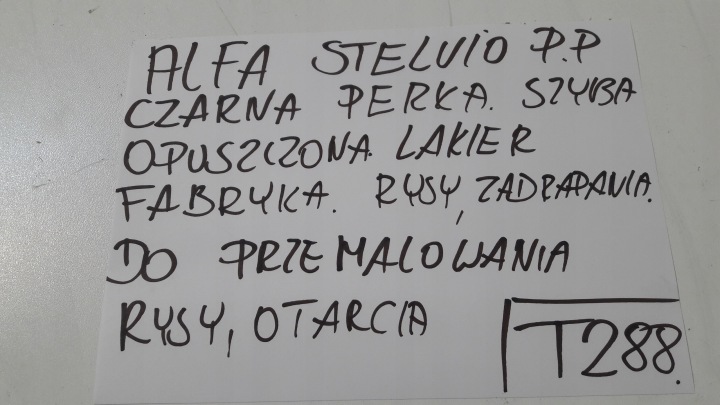 ALFA STELVIO P.P
CZARNA PERKA. SZYBA
OPUSZCZONA. LAKIER
FABRYKA. RYSY, ZADRAPANIA.
DO PRZEMALOWANIA
RYSY, OTARCIA
T288.